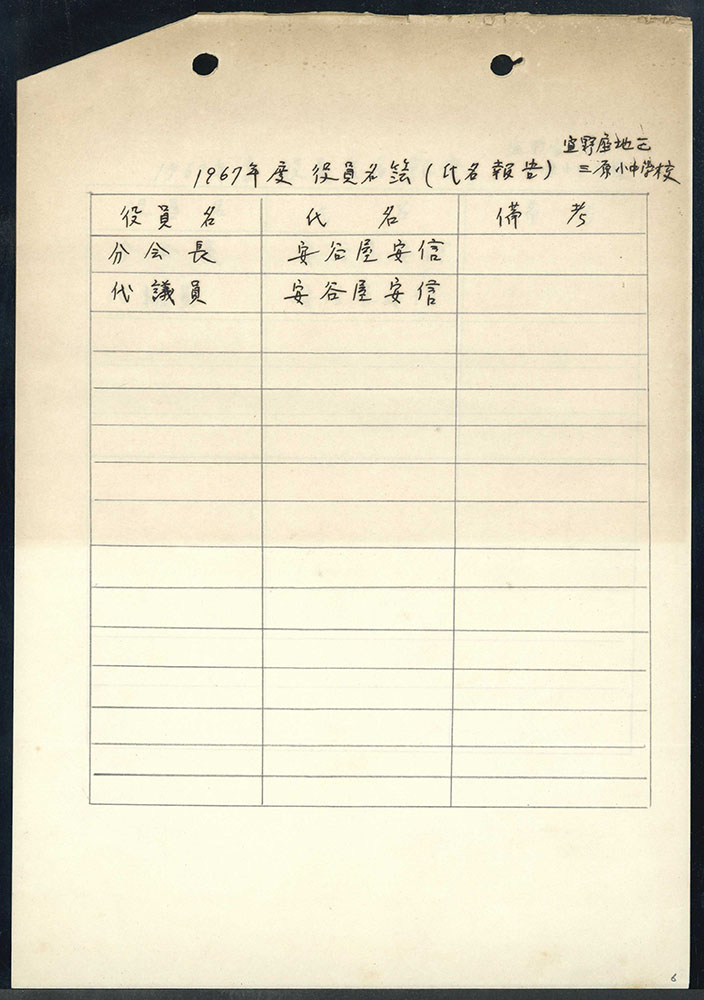 宜野座地区
三原小中学校
1967年度 役員名簿(氏名報告)
役員名 氏名 備考
分会長 安谷屋安信
代議員 安谷屋安信
6